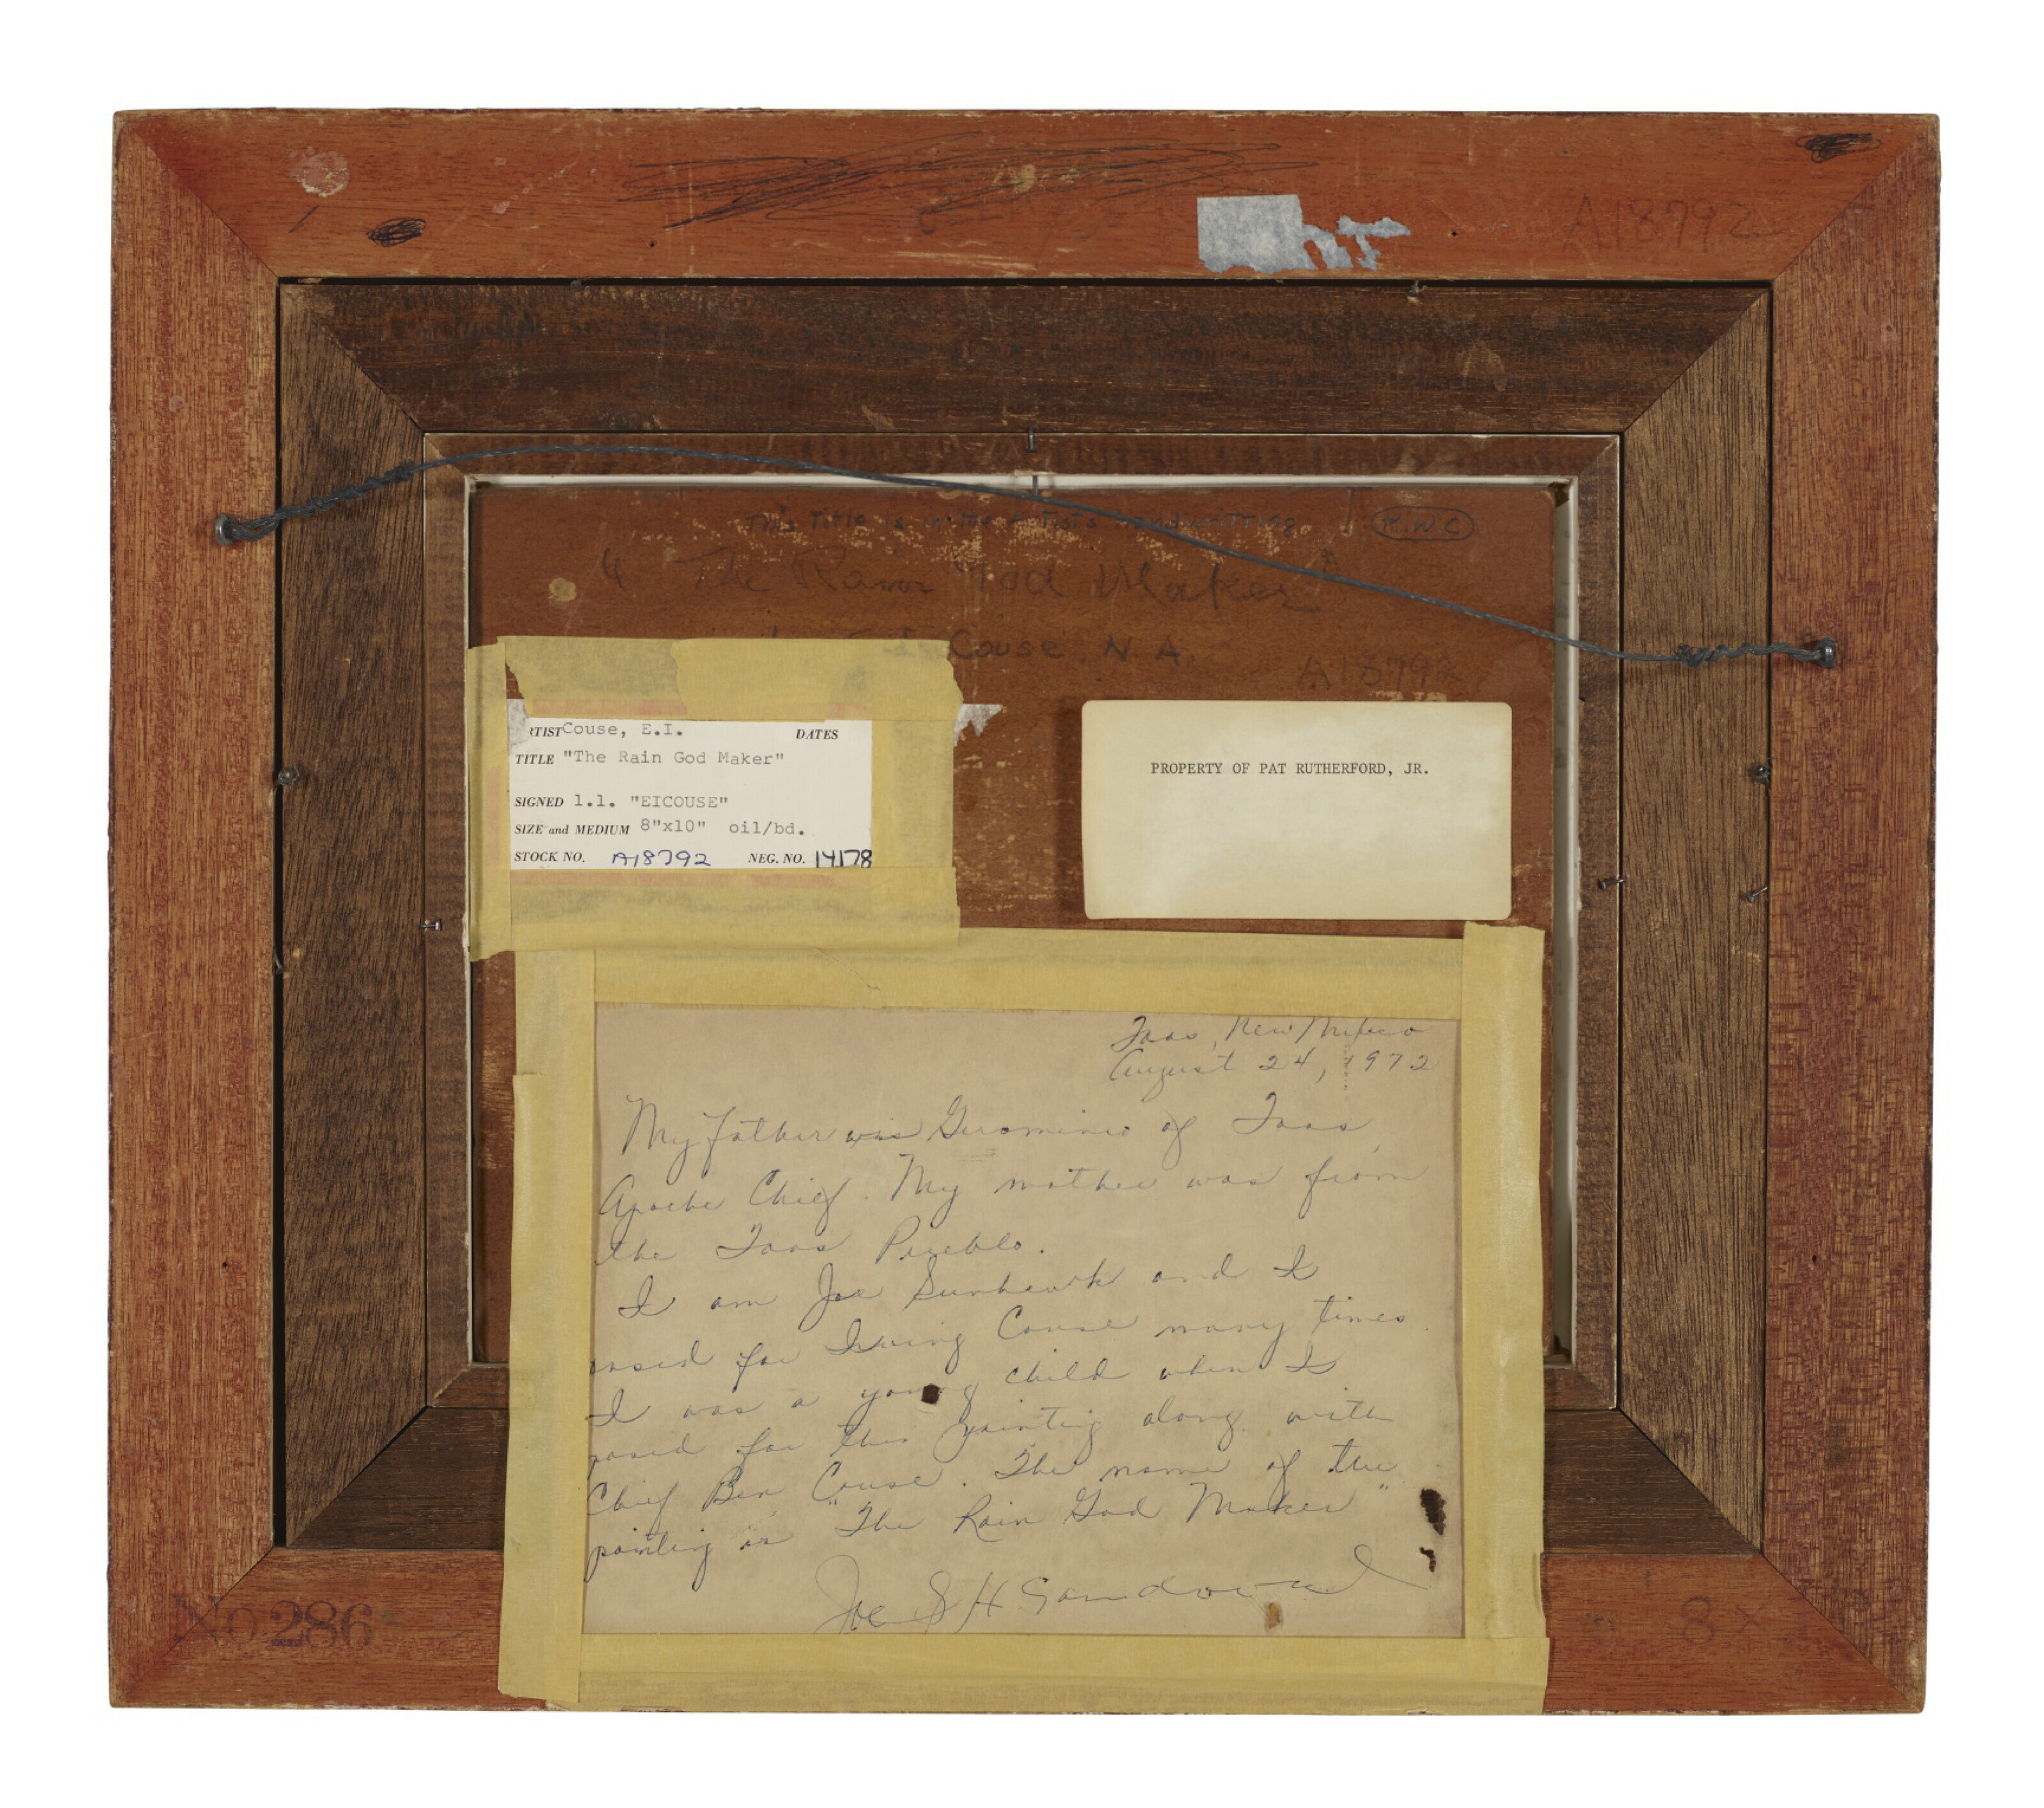 A18792
This Title is in the Artists handwritting
K.W.C
"The Rain God Maker"
by E. I. Couse, N. A.
A18792
ARTIST Couse, E.I. DATES
TITLE "The Rain God Maker"
SIGNED l.l. "EICOUSE"
SIZE and MEDIUM 8"x10" oil/bd.
STOCK NO. A18792 NEG. NO. 14178
PROPERTY OF PAT RUTHERFORD, JR.
Taos, New Mexico
August 24, 1972
My father was Gerominio of Taos,
Apache Chief. My mother was from
the Taos Pueblo.
I am Joe Sunhawk and I
posed for Irving Couse many times
I was a young child when I
posed for this painting along with
Chief Ben Couse. The name of the
painting is "The Rain God Maker"
Joe S H Sandoval
No 286
8x